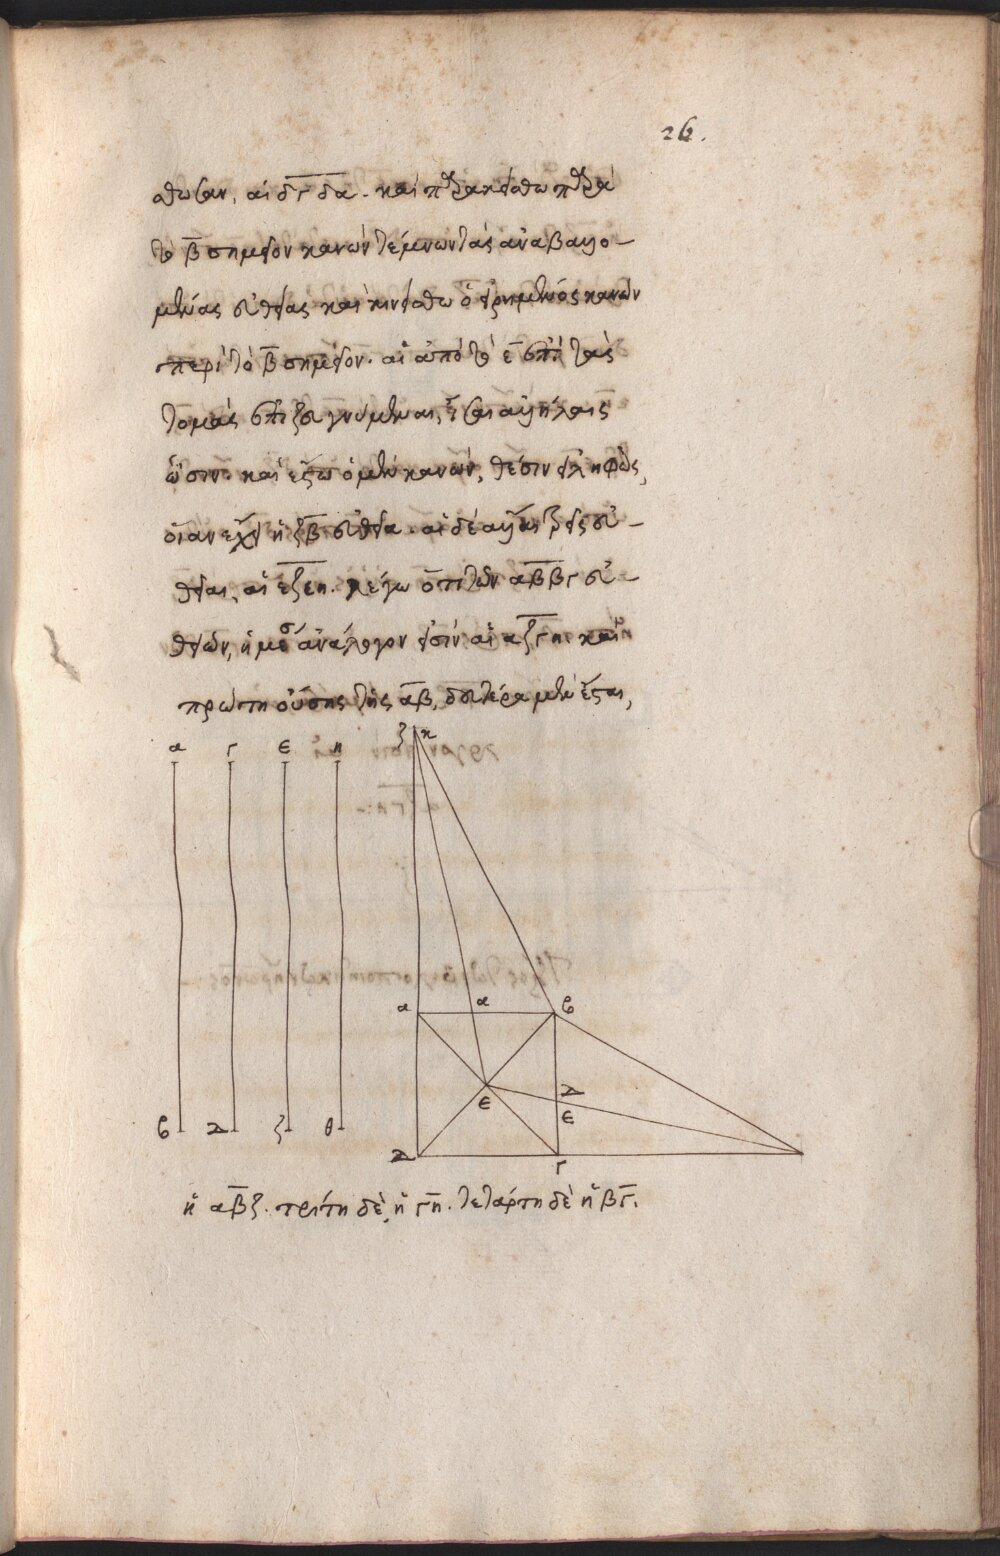 26.
σθωσαν, αἱ δγ δα. καὶ παρακείσθω παρὰ
τὸ β σημεῖον κανὼν τέμνων τὰς ἀναβαλλο-
μένας εὐθείας καὶ κινείσθω ὁ εἰρημένος κανὼν
περὶ τὸ β σημεῖον. αἱ ἀπὸ τοῦ ε ἐπὶ τὰς
τομὰς ἐπιζευγνύμεναι, ἴσαι ἀλλήλαις
ὦσιν. καὶ ἔξω ὁ μὲν κανὼν, θέσιν εἰληφὼς,
οἵαν ἔχει ἡ ζβ εὐθεῖα. αἱ δὲ ἄλλαι εὐ-
θεῖαι, αἱ εζ εη. λέγω ὅτι τῶν αβ βγ εὐ-
θειῶν, ἡ μέσαι ἀνάλογον εἰσὶν αἱ αζ γη. καὶ
πρώτη οὔσης τῆς αβ, δευτέρα μὲν ἔσται,
α γ ε η
ζ κ
α α β
ε δ
ε
β δ ζ θ
δ γ
ἡ αβζ. τρίτη δὲ, ἡ γη. τετάρτη δὲ ἡ βγ.